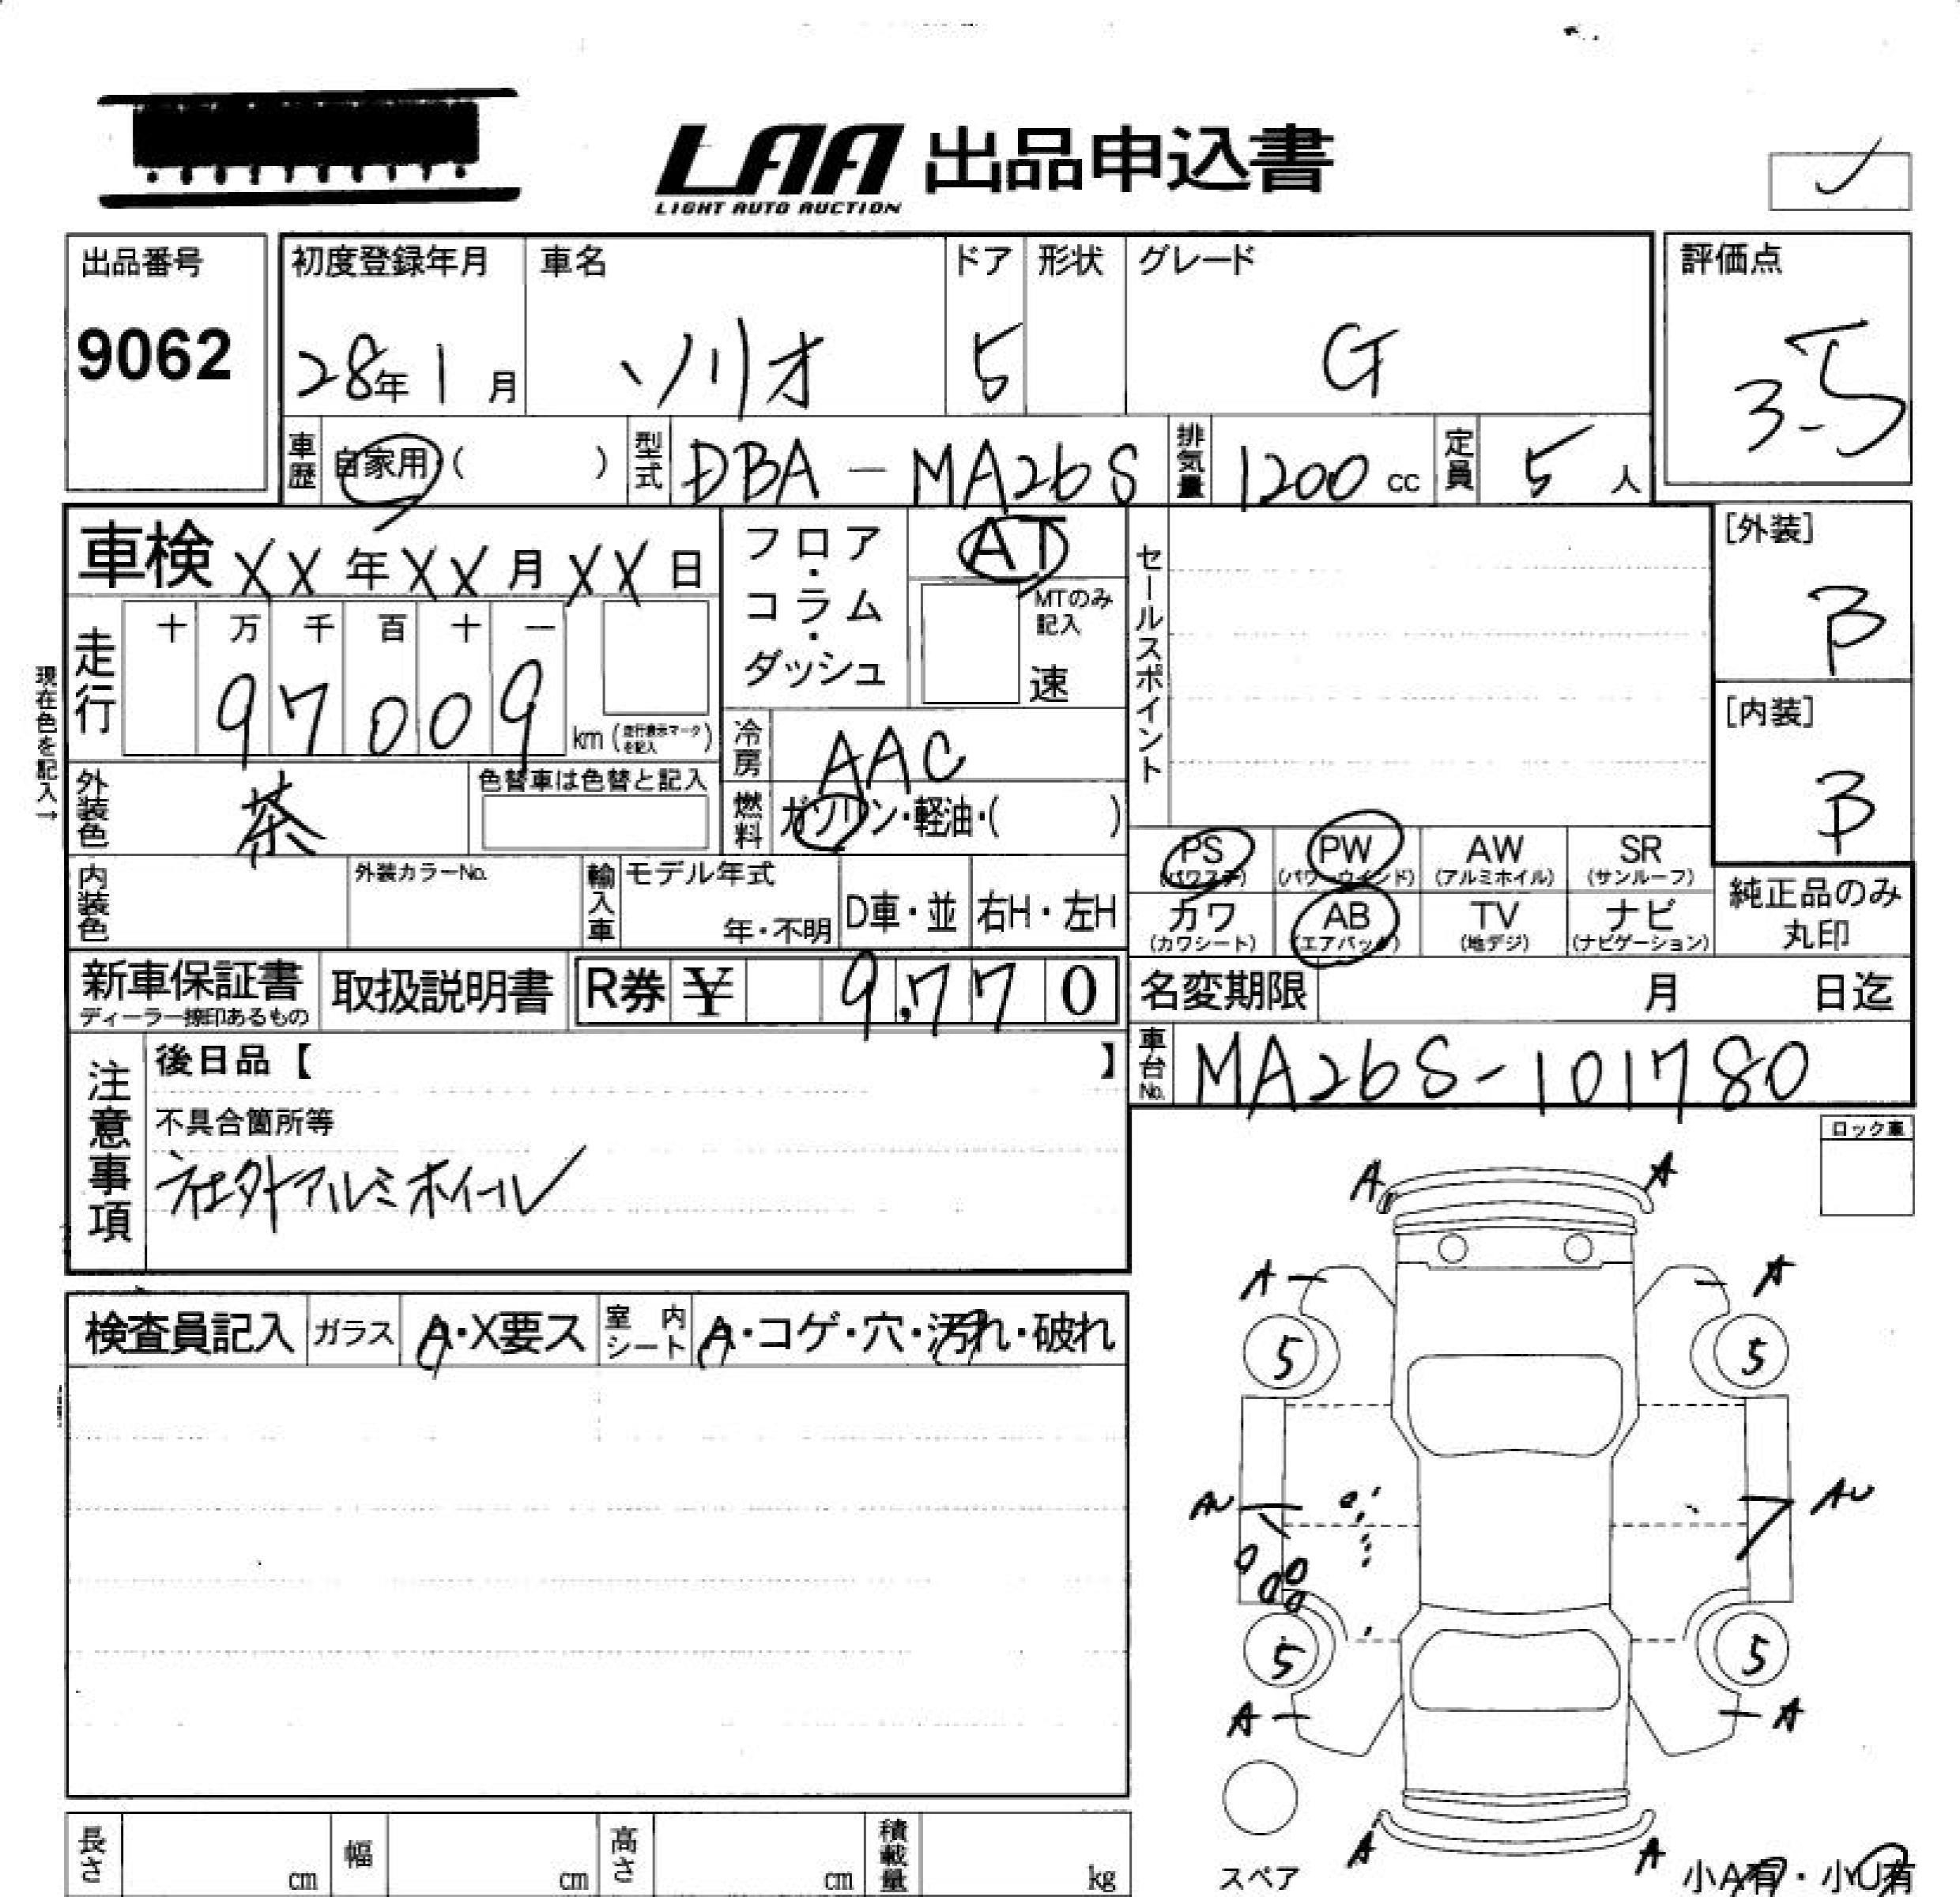 LAA 出品申込書
LIGHT AUTO AUCTION
出品番号
9062
初度登録年月 車名 ドア 形状 グレード
28年 1月 ソリオ 5 G
評価点
3.5
車歴 自家用・( ) 型式 DBA-MA26S 排気量 1200 cc 定員 5 人
車検 XX年XX月XX日
フロア・コラム・ダッシュ
AT
MTのみ記入
速
セールスポイント
[外装]
B
[内装]
B
現在色を記入→
走行 十 万 千 百 十 一
97009 km (走行表示マークを記入)
冷房 AAC
燃料 ガソリン・軽油・( )
外装色 茶 色替車は色替と記入
内装色 外装カラーNo. 輸入車 モデル年式 年・不明 D車・並 右H・左H
PS (パワステ) PW (パワーウインド) AW (アルミホイル) SR (サンルーフ)
カワ (カワシート) AB (エアバック) TV (地デジ) ナビ (ナビゲーション)
純正品のみ丸印
新車保証書 ディーラー捺印あるもの 取扱説明書 R券 ¥ 9,770
名変期限 月 日迄
車台No. MA26S-101780
注意事項 後日品【 】
不具合箇所等
社外アルミホイール
ロック車
A A
A A
5 5
AU AU
5 5
A A
A A
検査員記入 ガラス A・X要ス 室内シート A・コゲ・穴・汚れ・破れ
長さ cm 幅 cm 高さ cm 積載量 kg
スペア
小A有・小U有